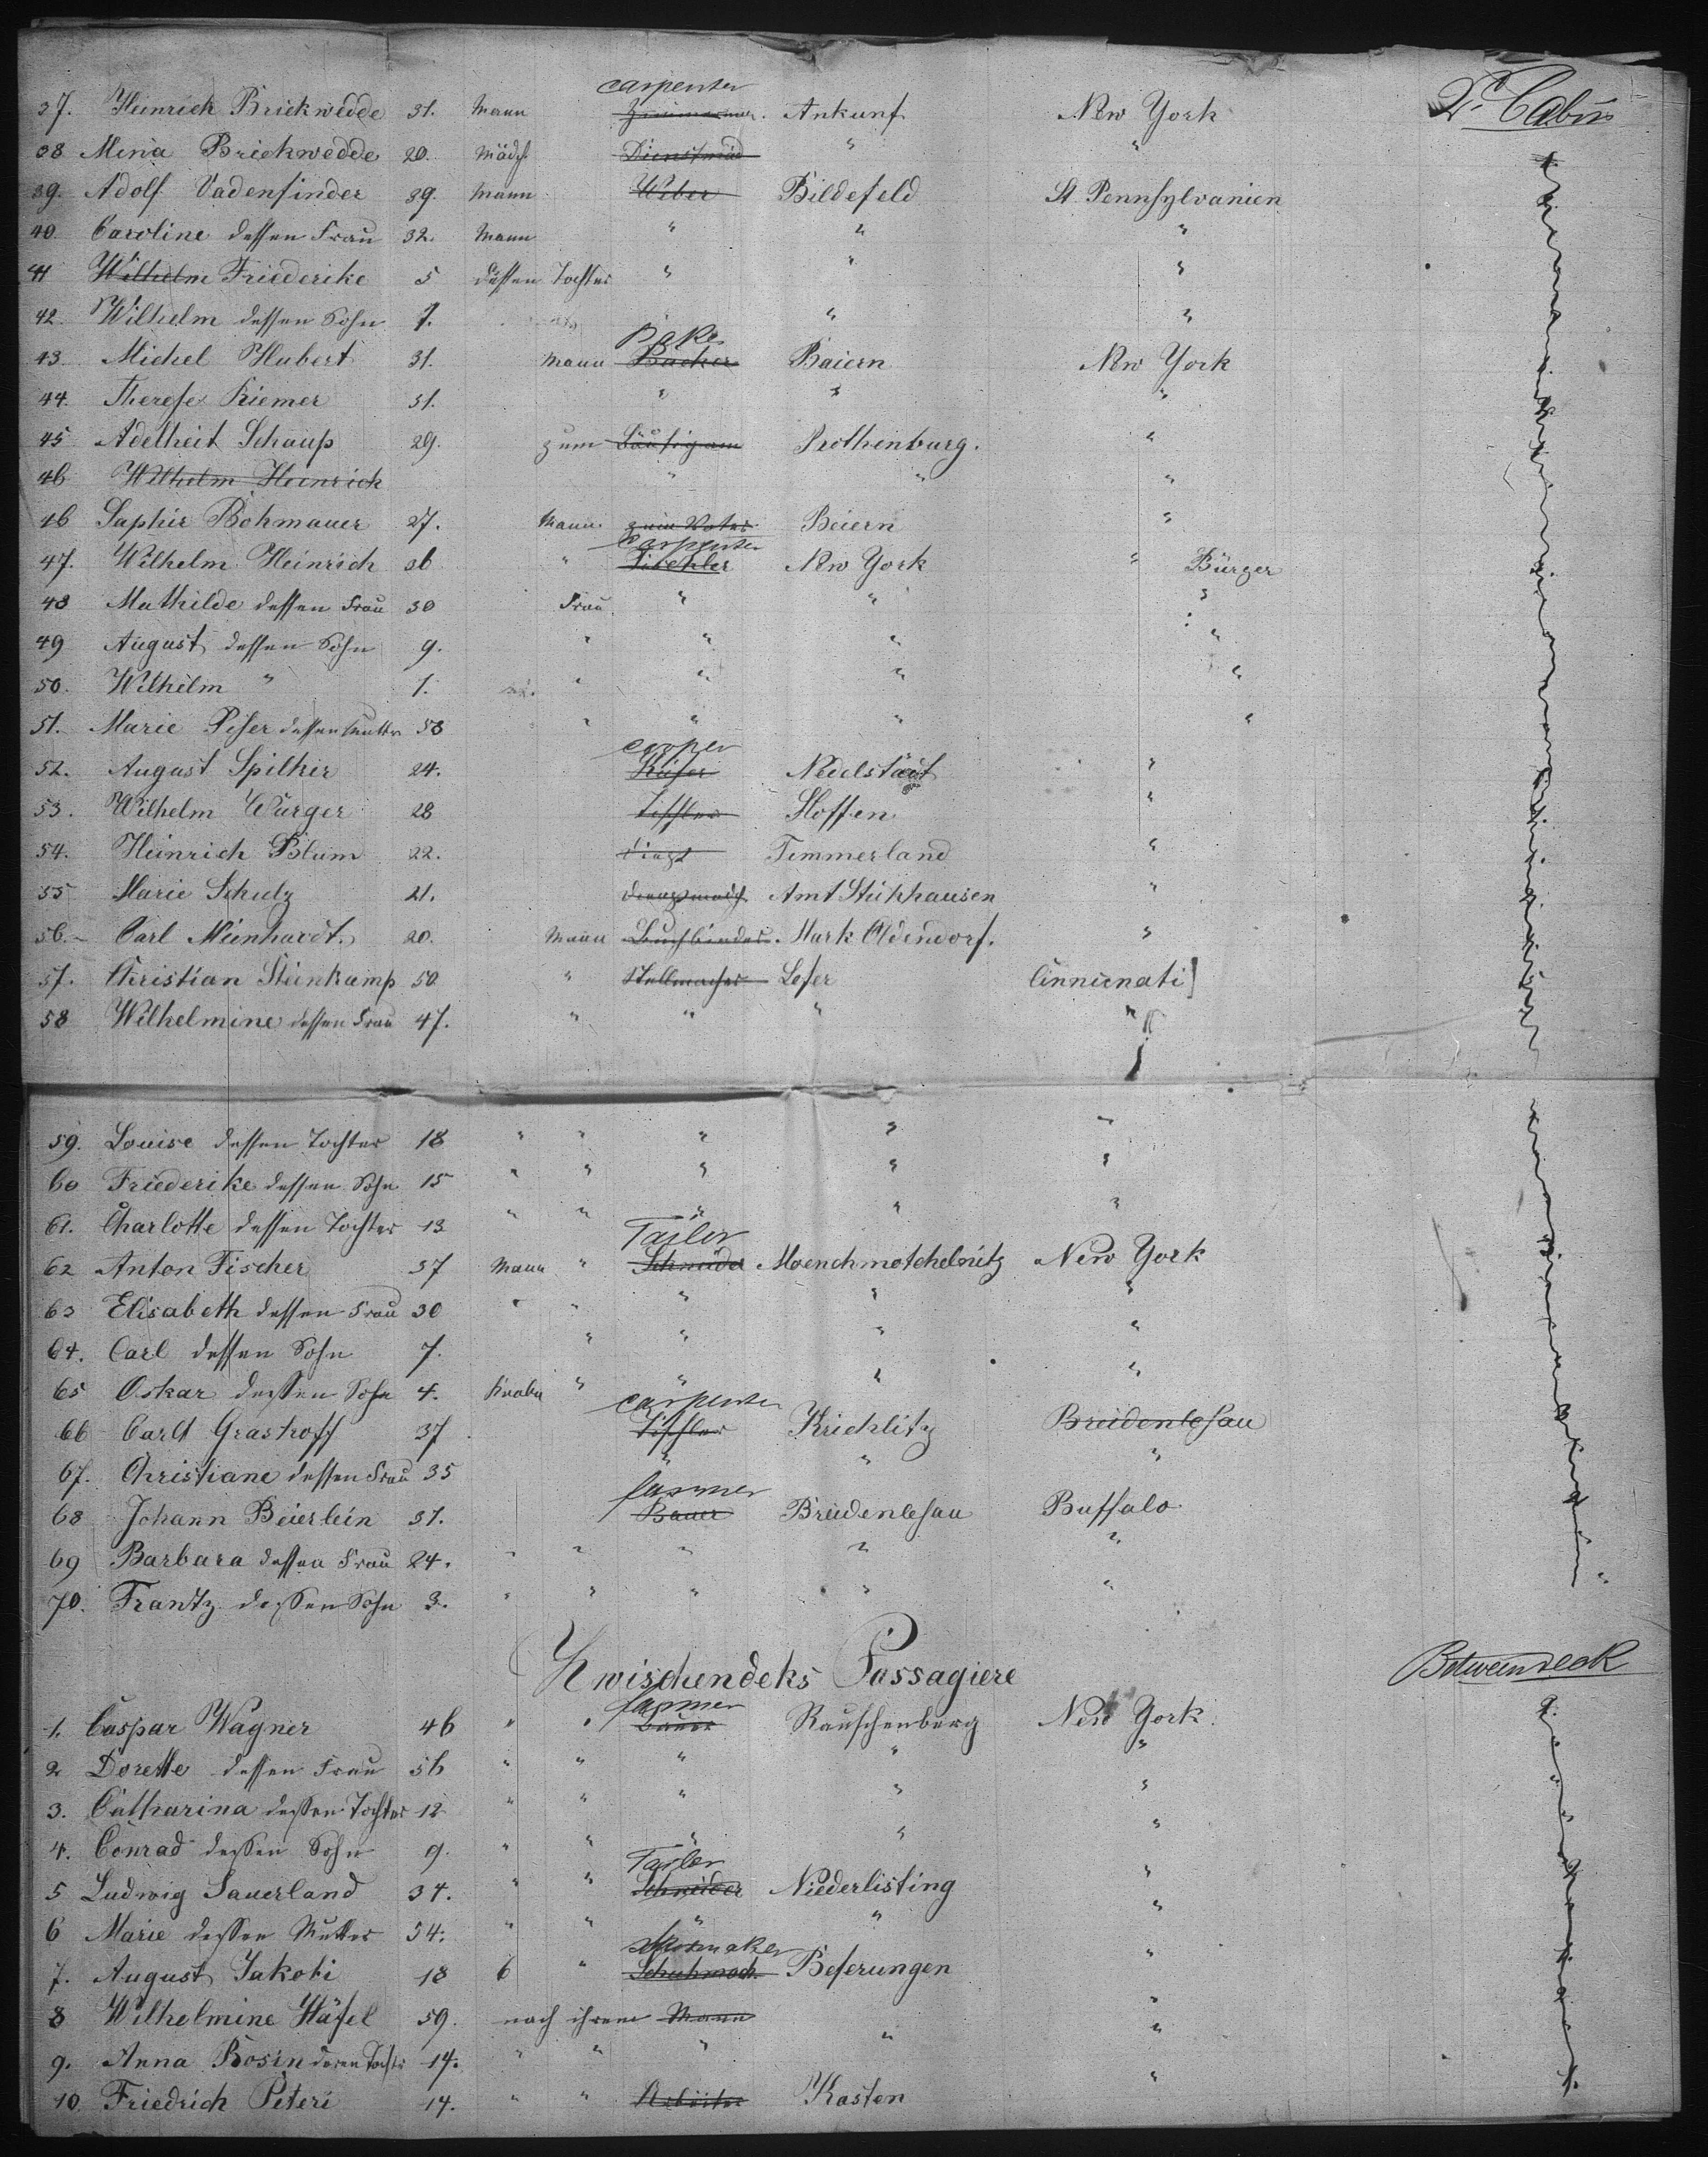 carpenter
37. Heinrich Brickwedde 31. Mann Zimmerman. Ankunf New York 2t Cabin
38 Mina Brickwedde 20. Mädch Dienstmäd " "
39. Adolf Vadensinder 39. Mann Weber Bildefeld St. Pennsylvanien
40. Caroline dessen Frau 32. Mann " " "
41 Wilhelm Friederike 5 dessen Tochter " " "
42. Wilhelm dessen Sohn 7. " "
Baker
43. Michel Hubert 31. Mann Backer Baiern New York
44. Therese Riemer 31. " " "
45 Adelheit Schaup 29. zum Bäutigam Rothenburg. "
46 Wilhelm Heinrich " " "
46 Saphie Bohmauer 27. Mann zum Vater Beiern "
carpenter
47. Wilhelm Heinrich 36 " Tischler New York " Bürger
48 Mathilde dessen Frau 30 Frau. " " "
49 August dessen Sohn 9. " " " "
50. Wilhelm " 1. " " " "
51. Marie Peser dessen Mutter 58 " " " "
cooper
52. August Spilker 24. Küfer Neuelstadt "
53. Wilhelm Würger 28 Tischler Hoffen "
54. Heinrich Blum 22. Timmerland "
55 Marie Schulz 21. Amt Stikhausen "
56. Carl Meinhardt. 20. Mann Buchbinder. Mark Oldendorf. "
57. Christian Steinkamp 50 " Stellmacher Leser Cinncinati
58 Wilhelmine dessen Frau 47. " " " "
59. Louise dessen Tochter 18 " " " " "
60 Friederike dessen Sohn 15 " " " " "
61. Charlotte dessen Tochter 13 " " " " "
Tailer
62 Anton Fischer 37 Mann " Schneider Moenchmotchelnitz New York
63 Elisabeth dessen Frau 30 " " " " "
64. Carl dessen Sohn 7. " " " "
65 Oskar dessen Sohn 4. Knabe " " " "
carpenter
66 Carlt Grashoff 37 Tischler Krichlitz Breidenlesau
67. Christiane dessen Frau 35 " " "
farmer
68 Johann Beierlein 37. Bauer Breidenlesau Buffalo
69 Barbara dessen Frau 24. " " " " "
70. Frantz dessen Sohn 3. " " " " "
Zwischendeks Passagiere Betweendeck
farmer
1. Caspar Wagner 46 " " Bauer Rauschenberg New York.
2 Dorette dessen Frau 56 " " " " "
3. Catharina dessen Tochter 12 " " " " "
4. Conrad dessen Sohn 9. " " " " "
Tailer
5 Ludwig Sauerland 34. " " Schneider Niederlisting "
6 Marie dessen Mutter 54. " " " " "
Shoemaker
7. August Jakobi 18 6 " Schuhmach Beserungen "
8 Wilhelmine Häfel 59. nach ihrem Mann "
9. Anna Bosin deren Tocht 14. " " " " "
10 Friedrich Peteri 14. " " Arbeiter Kasten "